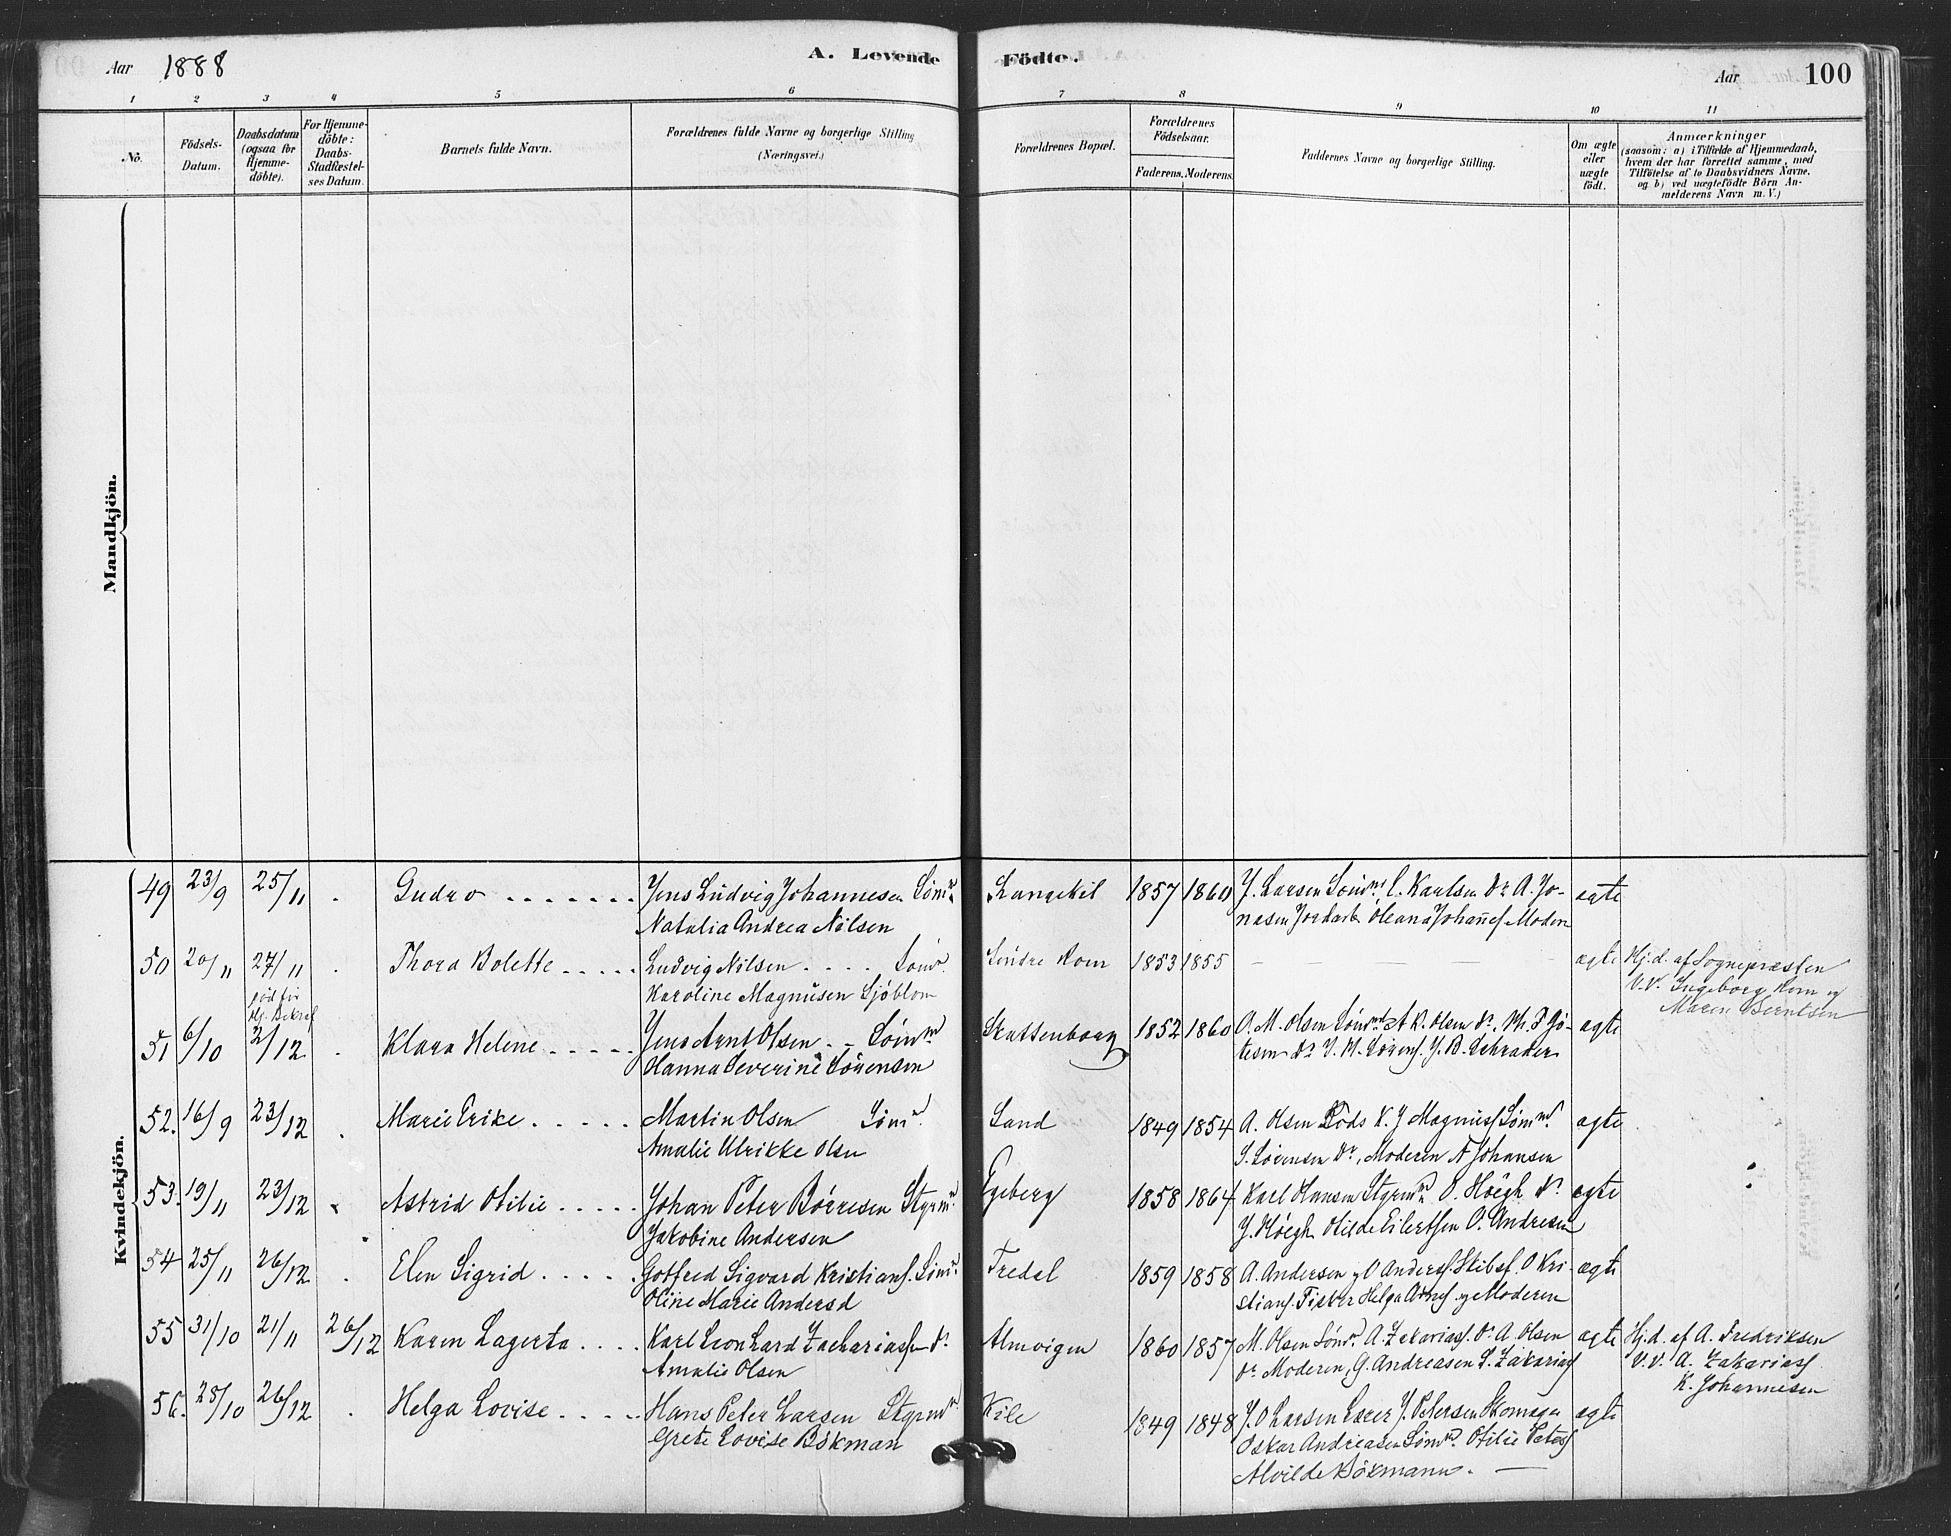 Aar 1888 A. Levende Födte. Aar 100
1 2 3 4 5 6 7 8 9 10 11
No.
Födsels-Datum.
Daabsdatum (ogsaa for Hjemmedöbte).
For Hjemmedöbte: Daabs-Stadfæstelses Datum.
Barnets fulde Navn.
Forældrenes fulde Navne og borgerlige Stilling (Næringsvei.)
Forældrenes Bopæl.
Forældrenes Födselsaar.
Faderens. Moderens.
Faddernes Navne og borgerlige Stilling.
Om ægte eller uægte födt.
Anmærkninger
(saasom: a) i Tilfælde af Hjemmedaab,
hvem der har forrettet samme, med
Tilföielse af to Daabsvidners Navne,
og b) ved uægtefödte Börn An-
melderens Navn m. V.)
Mandkjön.
Kvindekjön.
49 23/9 25/11 . Gudro Jens Ludvig Johannesen Søm. Langekil 1857 1860 J. Larsen Sømd. C. Karlsen Do A. Jo- ægte
Natalia Andrea Nilsen nasen Oleana Johannes Moderen
50 20/11 27/11 . Thora Bolette Ludvig Nilsen Sømd. Søndre Rom 1853 1855 — — — — ægte Hj.d. af Sognepræsten
Karoline Magnusen Sjöblom V.V. Ingeborg Rom og
Maren Berntsen
51 6/10 2/12 . Klara Helene Jens Arnt Olsen Sømd Skottenborg 1852 1860 O. M. Olsen Sømd A K. Olsen Do. M. J Jo- ægte
Hanna Severine Sørensen
52. 16/9 23/12 . Marie Erike Martin Olsen Sømd. Sand 1849 1854 A. Olsen Röds K. J Magnuss Sømd. ægte
Amalie Ulrikke Olsen S. Sørensen Do, Moderen A Johansen
53. 19/11 23/12 Astrid Otilie Johan Peter Børresen Styrm. Egeberg 1858 1864 Karl Hansen Styrmd O. Höegh Do. ægte
Jakobine Andersen J. Höegh Otilde Eilertsen O. Andresen
54 25/11 26/12 . Elen Sigrid Gotfred Sigvard Kristians. Sømd. Fredal 1859 1858 A. Andersen og O Anders. Skibsf. O Kri- ægte
Oline Marie Andersd stians. Fisker Helga Arnes. og Moderen
55 31/10 21/11 26/12 Karen Lagerta Karl Leonhard Zachariassen Do. Almvigen 1860 1857 M. Olsen Sømd. A. Zakarias. Do A. Olsen ægte Hj.d. af A. Fredriksen
Amalie Olsen Do. Moderen, G. Andreasen S. Zakarias V.V. A. Zakarias
K. Johannesen
56. 28/10 26/12 . Helga Lovise Hans Peter Larsen Styrmd. Kile 1849 1848 J. O Larsen Lærer J. Petersen Skomager ægte
Grete Lovise Bökman Oskar Andreasen Sømd. Otilie Peters
Alvilde Bökmann. —